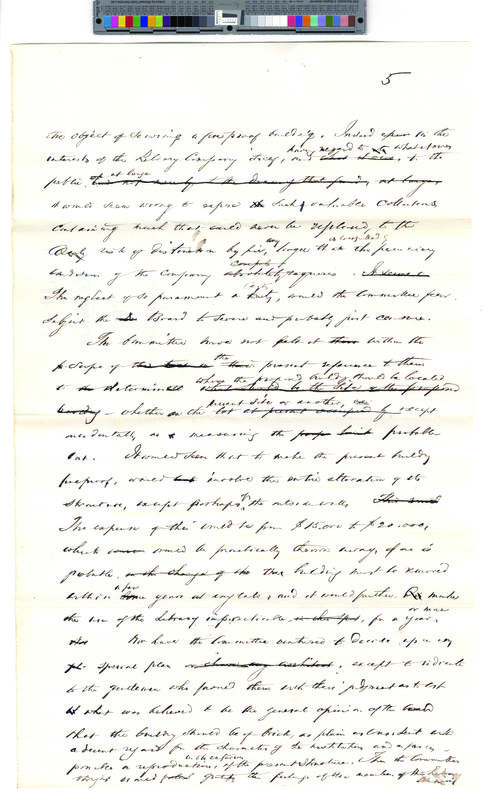 5
the object of securing a fireproof building. Indeed in the
interests of the Library Company itself, and having regard to what it owes, to the
public at large,
it would seem wrong to expose such valuable Collections
containing much that could never be replaced, to the
risk of destruction by fire, any longer than the pecuniary
condition of the Company absolutely requires.
The neglect of so paramount a duty, would the Committee fear
subject the Board to severe and probably just censure.
The Committee have not felt it within the
scope of the present reference to them
to determine where the proposed building should be located
whether on the present site or another, except
incidentally as measuring the probable
cost. It would seem that to make the present building
fireproof, would involve the entire alteration of its
structure, except perhaps the outside walls.
The expense of this would be from $15,000 to $20,000,
which would be practically thrown away, if as is
probable, the building must be removed
within a few years at any rate, and it would further make
the use of the Library impracticable, for a year, or more
Nor have the Committee ventured to decide upon any
special plan, except to indicate
to the gentlemen who favored them with their judgment as to cost
what was believed to be the general opinion of the Board
that the building should be of brick, as plain as consistent with
a decent regard for the character of the institution and as far as
possible a reproduction, of the present structure. Thus the Committee
thought would the feelings of the members of the Library